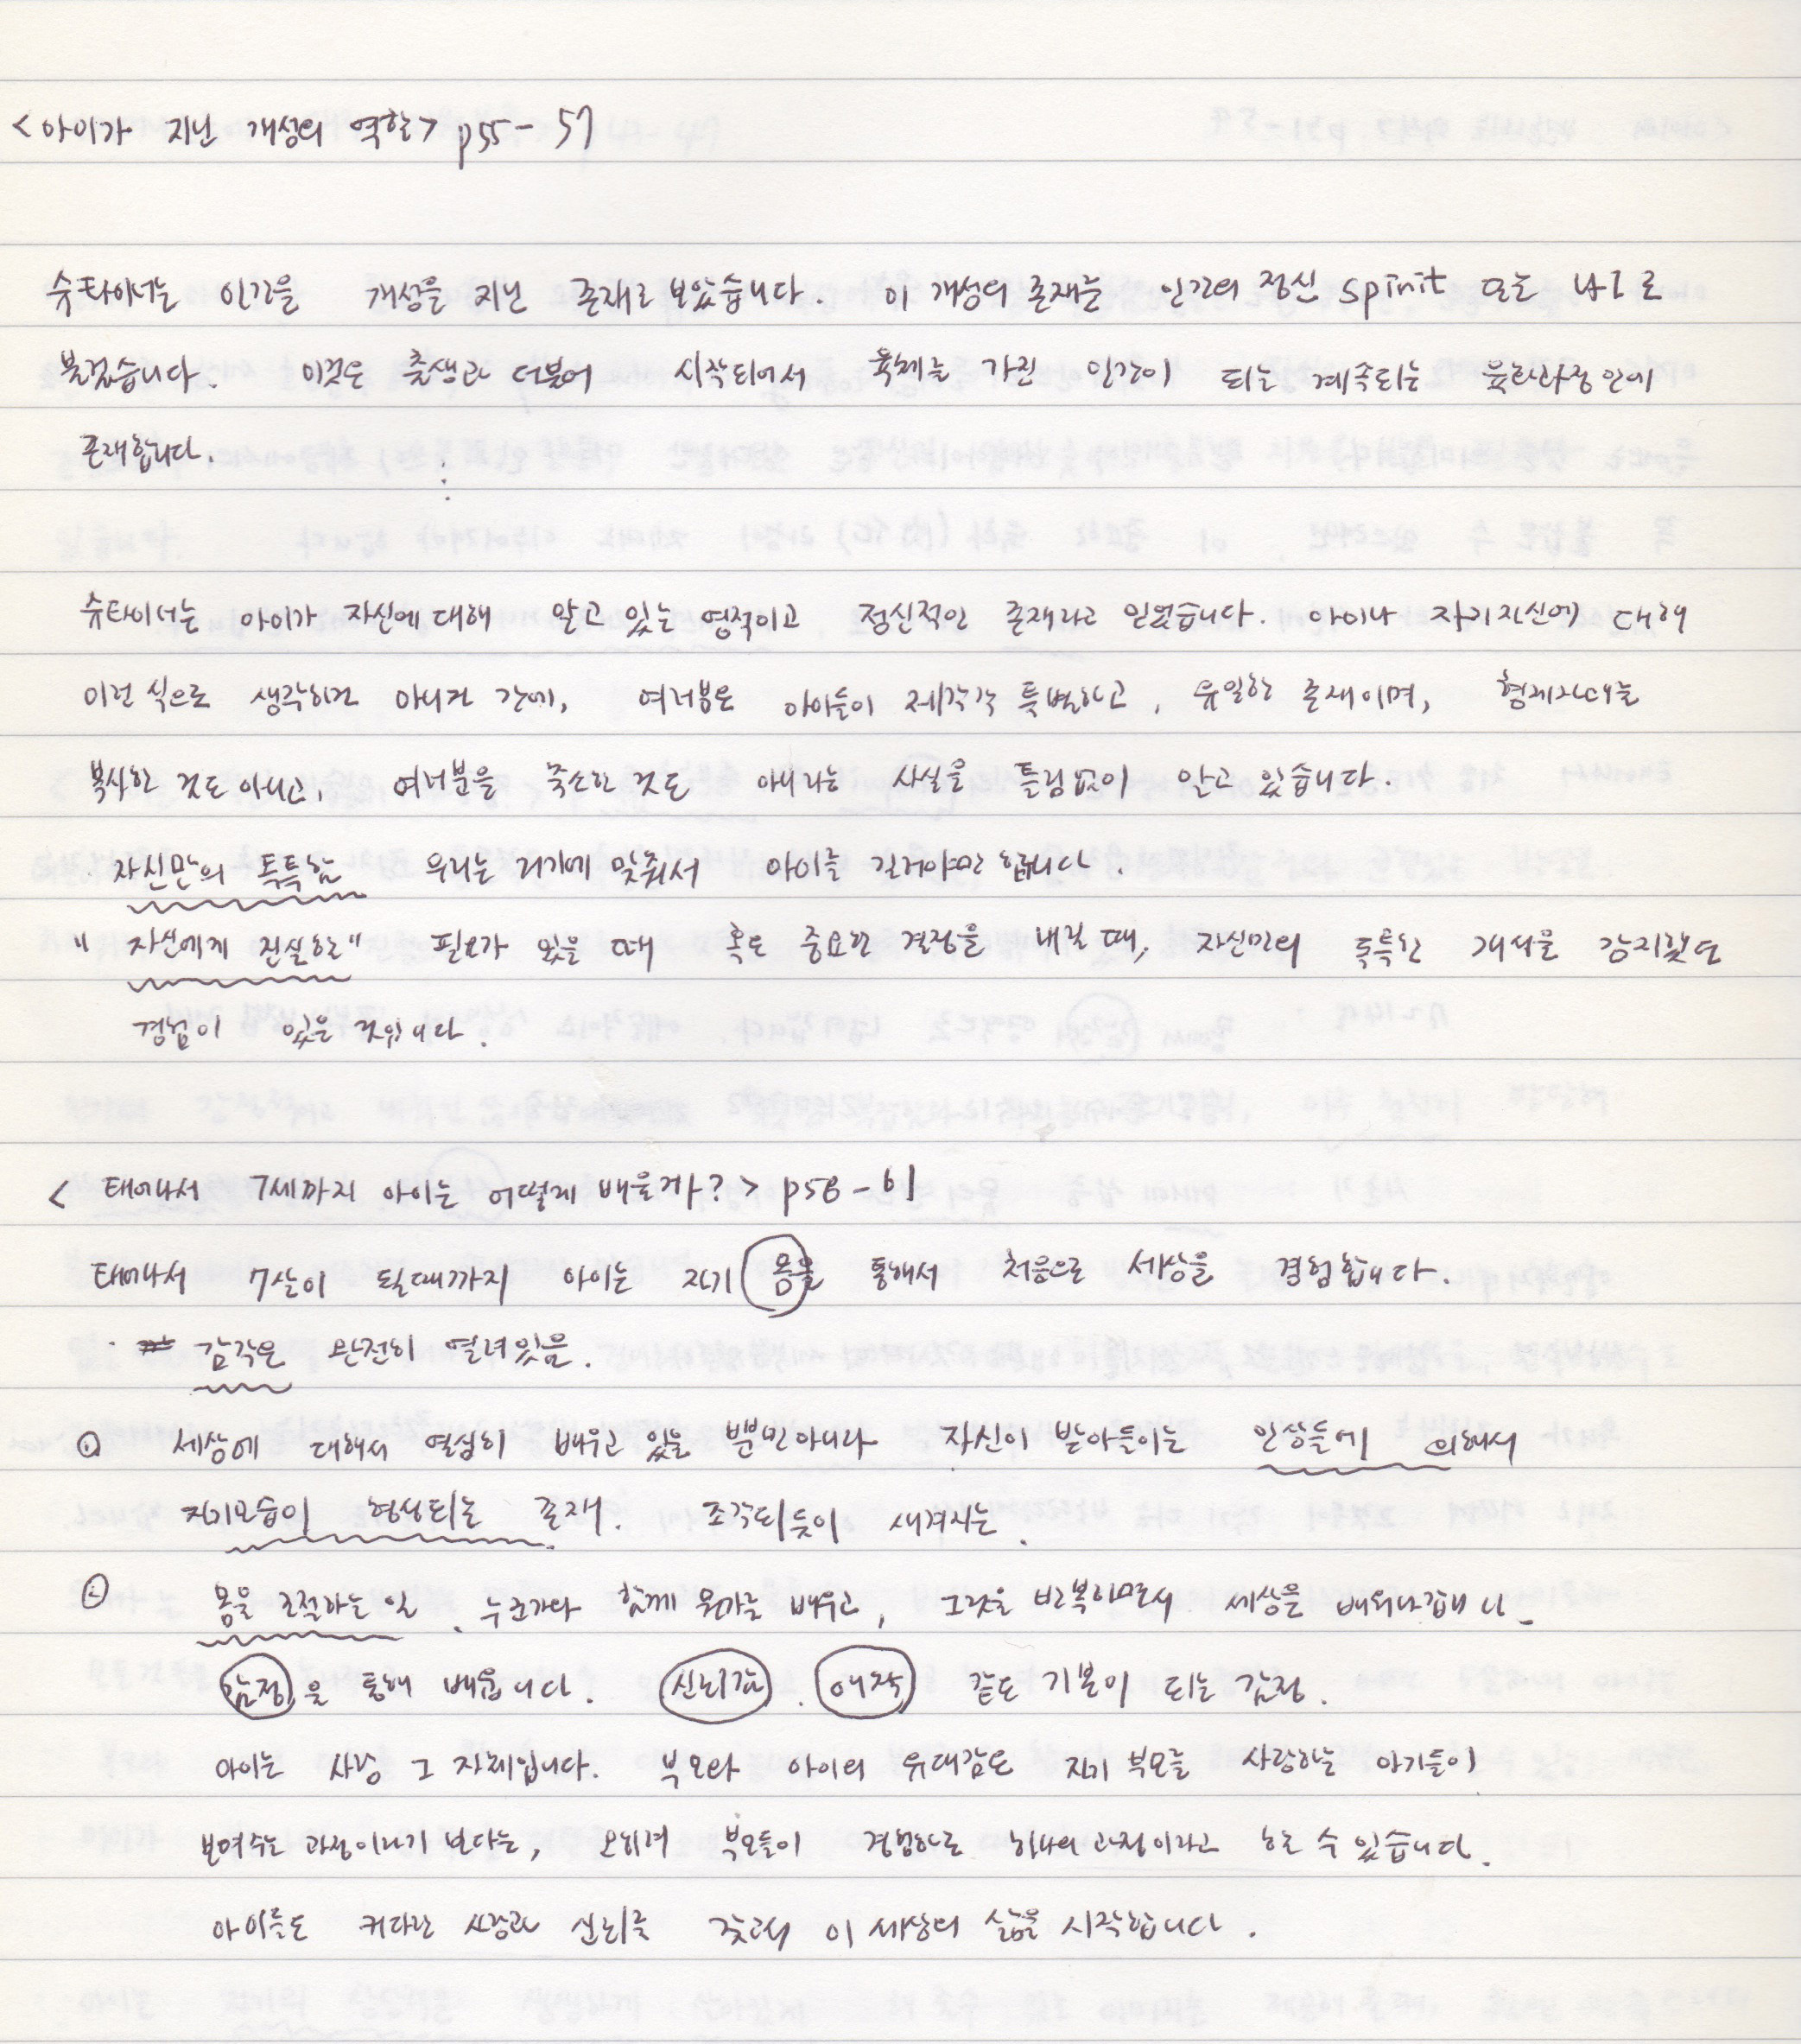 <아이가 지닌 개성의 역할> p55-57
슈타이너는 인간을 개성을 지닌 존재로 보았습니다. 이 개성의 존재는 인간의 정신 spirit 또는 나I로
불렀습니다. 이것은 출생과 더불어 시작되어서 육체를 가진 인간이 되는 계속되는 육화과정 안에
존재합니다.
슈타이너는 아이가 자신에 대해 알고 있는 영적이고 정신적인 존재라고 믿었습니다. 아이나 자기자신에 대해
이런 식으로 생각하건 아니건 간에, 여러분은 아이들이 제각각 특별하고, 유일한 존재이며, 형제자매를
복사한 것도 아니고, 여러분을 축소한 것도 아니라는 사실을 틀림없이 알고 있습니다.
· 자신만의 독특함 우리는 거기에 맞춰서 아이를 길러야만 합니다.
"자신에게 진실한" 필요가 있을 때 혹은 중요한 결정을 내릴 때, 자신만의 독특한 개성을 감지했던
경험이 있을 것입니다.
< 태어나서 7세까지 아이는 어떻게 배울까?> p58-61
태어나서 7살이 될때까지 아이는 자기 몸을 통해서 처음으로 세상을 경험합니다.
· 감각은 완전히 열려있음.
세상에 대해서 열심히 배우고 있을 뿐만아니라 자신이 받아들이는 인상들에 의해서
자기모습이 형성되는 존재. 조각되듯이 새겨지는.
몸을 조절하는 일. 누군가와 함께 뭔가를 배우고, 그것을 반복하면서 세상을 배워나갑니다
감정을 통해 배웁니다. 신뢰감. 애착 같은 기본이 되는 감정.
아이는 사랑 그 자체입니다. 부모와 아이의 유대감은 자기 부모를 사랑하는 아기들이
보여주는 과정이라기 보다는, 오히려 부모들이 경험하는 하나의 과정이라고 할 수 있습니다.
아이들은 커다란 사랑과 신뢰를 갖고서 이 세상의 삶을 시작합니다.